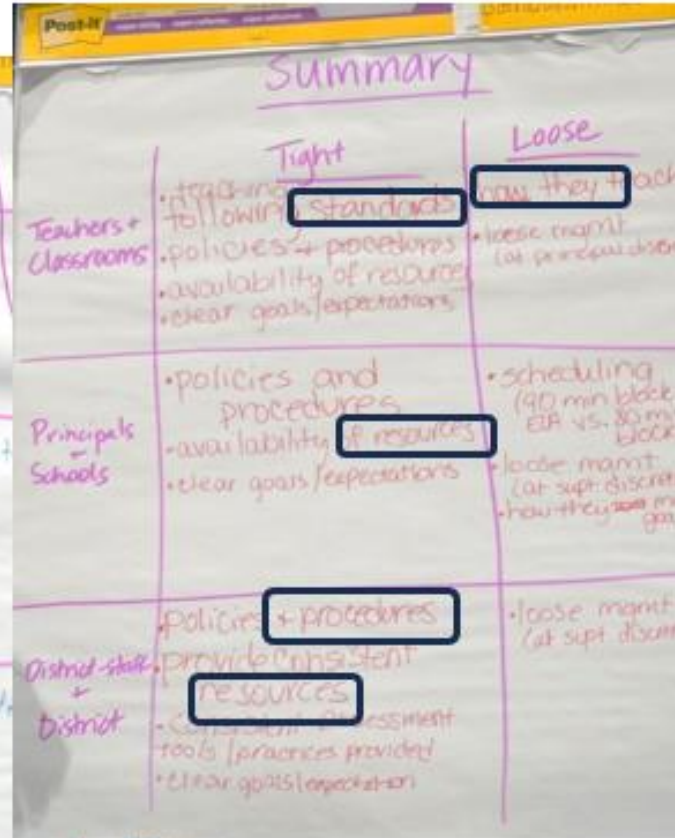 Post-it
Summary
Tight
Loose
Teachers +
Classrooms
• teaching
following standards
• policies + procedures
• availability of resources
• clear goals/expectations
how they teach
• loose mgmt
(at principal
Principals
+
Schools
• policies and
procedures
• availability of resources
• clear goals/expectations
• scheduling
(90 min block
ELA vs. 80 min
block
• loose mgmt
(at supt discret
• how they
District-staff
+
District
• policies + procedures
• provide consistent
resources
• consistent assessment
tools/practices provided
• clear goals/expectation
• loose mgmt
(at supt